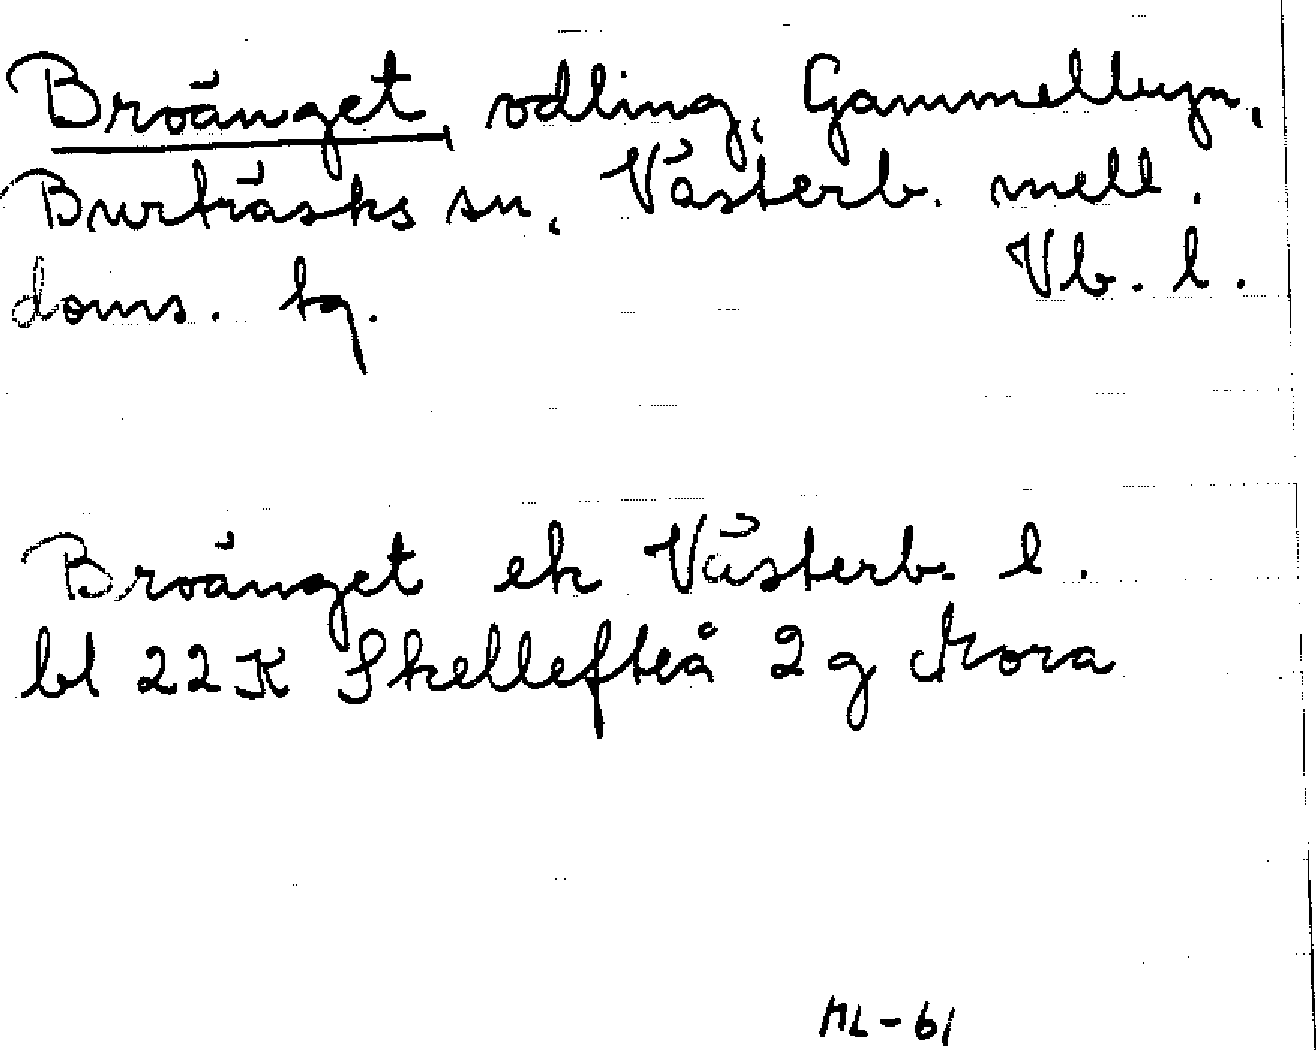 Broänget, odling, Gammelbyn,
Burträsks sn, Västerb. mell.
doms. tg. Vb. l.
Broänget ek Västerb. l.
bl 22 K Skellefteå 2 g Mora
ML-61